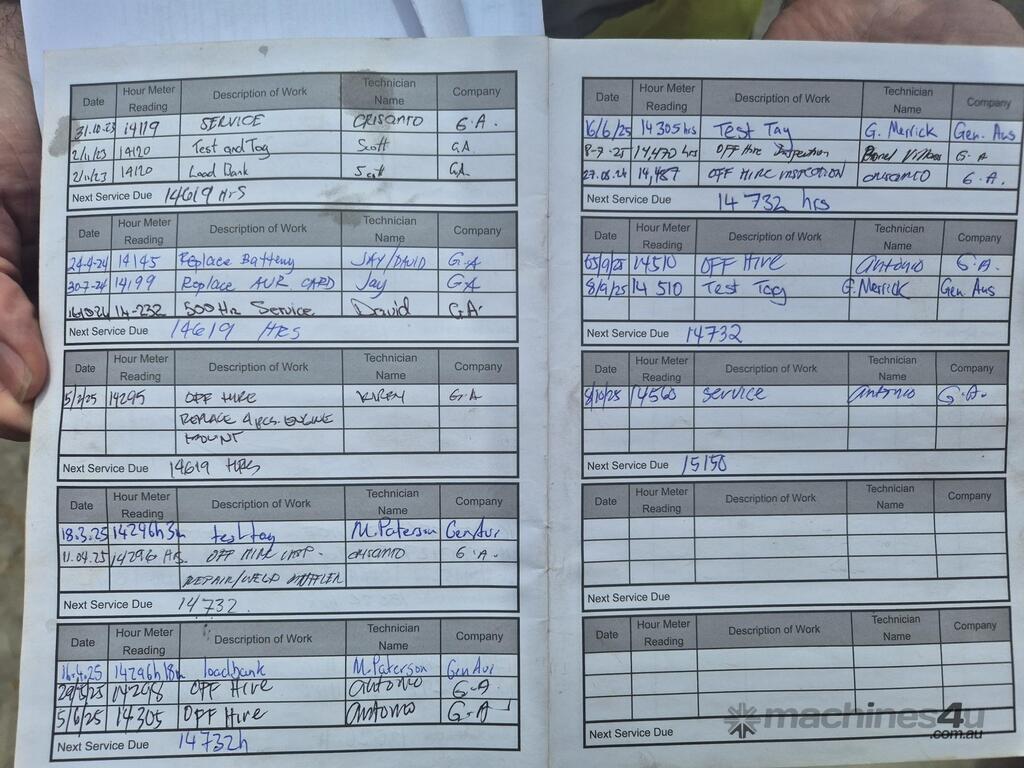 Date Hour Meter Reading Description of Work Technician Name Company
31.10.23 14119 SERVICE CRISANTO G.A.
2/11/23 14120 Test and Tag Scott G.A
2/11/23 14120 Load Bank Scott GA
Next Service Due 14619 HRS
Date Hour Meter Reading Description of Work Technician Name Company
24-4-24 14145 Replace Battery JAY/DAVID G.A
30-7-24 14199 Replace AUR CARD Jay GA
14-232 500 Hr Service David G.A.
Next Service Due 14619 HRS
Date Hour Meter Reading Description of Work Technician Name Company
5/2/25 14295 OFF HIRE G.A
REPLACE 4 PCS. ENGINE
MOUNT
Next Service Due 14619 HRS
Date Hour Meter Reading Description of Work Technician Name Company
18.3.25 14296h 3m test tag M.Paterson GenAus
11.04.25 14296 Hrs. OFF HIRE INSP. CRISANTO G.A.
REPAIR/WELD MUFFLER
Next Service Due 14732.
Date Hour Meter Reading Description of Work Technician Name Company
16.4.25 14296h18m loadbank M.Paterson GenAus
29/5/25 14298 OFF Hire Antonio G-A
5/6/25 14305 OFF Hire Antonio G-A
Next Service Due 14732h
Date Hour Meter Reading Description of Work Technician Name Company
16/6/25 14305hrs Test Tag G. Merrick Gen. Aus
8-7-25 14,470 hrs OFF Hire Inspection G-A
14,487 OFF HIRE INSPECTION CRISANTO G.A.
Next Service Due 14732 hrs
Date Hour Meter Reading Description of Work Technician Name Company
05/9/25 14510 OFF Hire Antonio G.A.
8/9/25 14510 Test Tag G.Merrick Gen Aus
Next Service Due 14732
Date Hour Meter Reading Description of Work Technician Name Company
8/10/25 14560 service Antonio G.A.
Next Service Due 15150
Date Hour Meter Reading Description of Work Technician Name Company
Next Service Due
Date Hour Meter Reading Description of Work Technician Name Company
Next Service Due
machines4u
.com.au